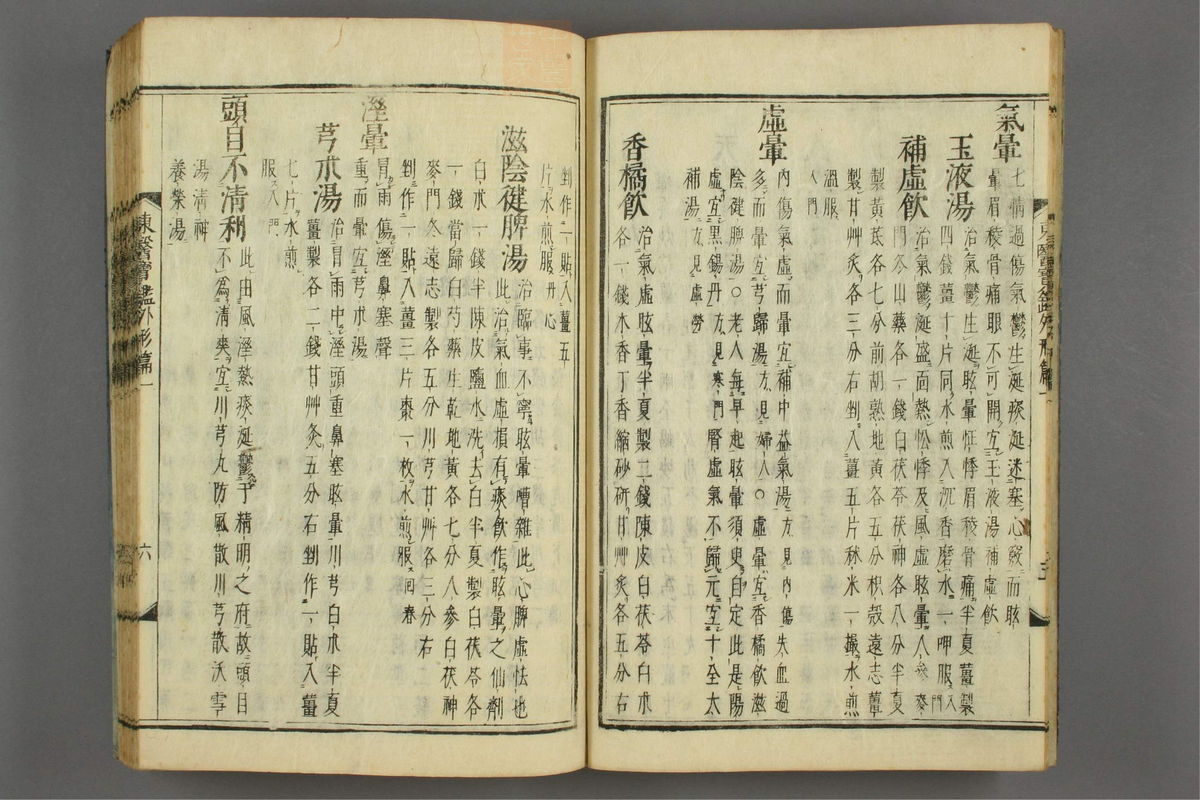 氣暈
七情過傷氣鬱生涎痰涎迷塞心竅而眩
暈眉稜骨痛眼不可開宜玉液湯補虛飮
玉液湯
治氣鬱生涎眩暈怔悸眉稜骨痛半夏薑製
四錢薑十片同水煎入沉香磨水一呷服入門
補虛飮
治氣鬱涎盛面熱忪悸及風虛眩暈人參麥
門冬山藥各一錢白茯苓茯神各八分半夏
製黃芪各七分前胡熟地黃各五分枳殼遠志薑
製甘艸炙各三分右剉入薑五片秫米一撮水煎
溫服
入門
虛暈
內傷氣虛而暈宜補中益氣湯方見內傷失血過
多而暈宜芎歸湯方見婦人○虛暈宜香橘飮滋
陰健脾湯○老人每早起眩暈須臾自定此是陽
虛宜黑錫丹方見寒門腎虛氣不歸元宜十全大
補湯方見虛勞
香橘飮
治氣虛眩暈半夏製二錢陳皮白茯苓白朮
各一錢木香丁香縮砂研甘艸炙各五分右
剉作二貼入薑五
片水煎服丹心
滋陰健脾湯
治臨事不寧眩暈嘈雜此心脾虛怯也
此治氣血虛損有痰飮作眩暈之仙劑
白朮一錢半陳皮鹽水洗去白半夏製白茯苓各
一錢當歸白芍藥生乾地黃各七分人參白茯神
麥門冬遠志製各五分川芎甘艸各三分右
剉作一貼入薑三片棗一枚水煎服回春
溼暈
冒雨傷溼鼻塞聲
重而暈宜芎朮湯
芎朮湯
治冒雨中溼頭重鼻塞眩暈川芎白朮半夏
薑製各二錢甘艸灸五分右剉作一貼入薑
七片水煎
服入門
頭目不清利
此由風溼熱痰涎鬱于精明之府故頭目
不爲清爽宜川芎丸防風散川芎散沃雪
湯清神
養榮湯
東醫寶鑑外形篇一
六